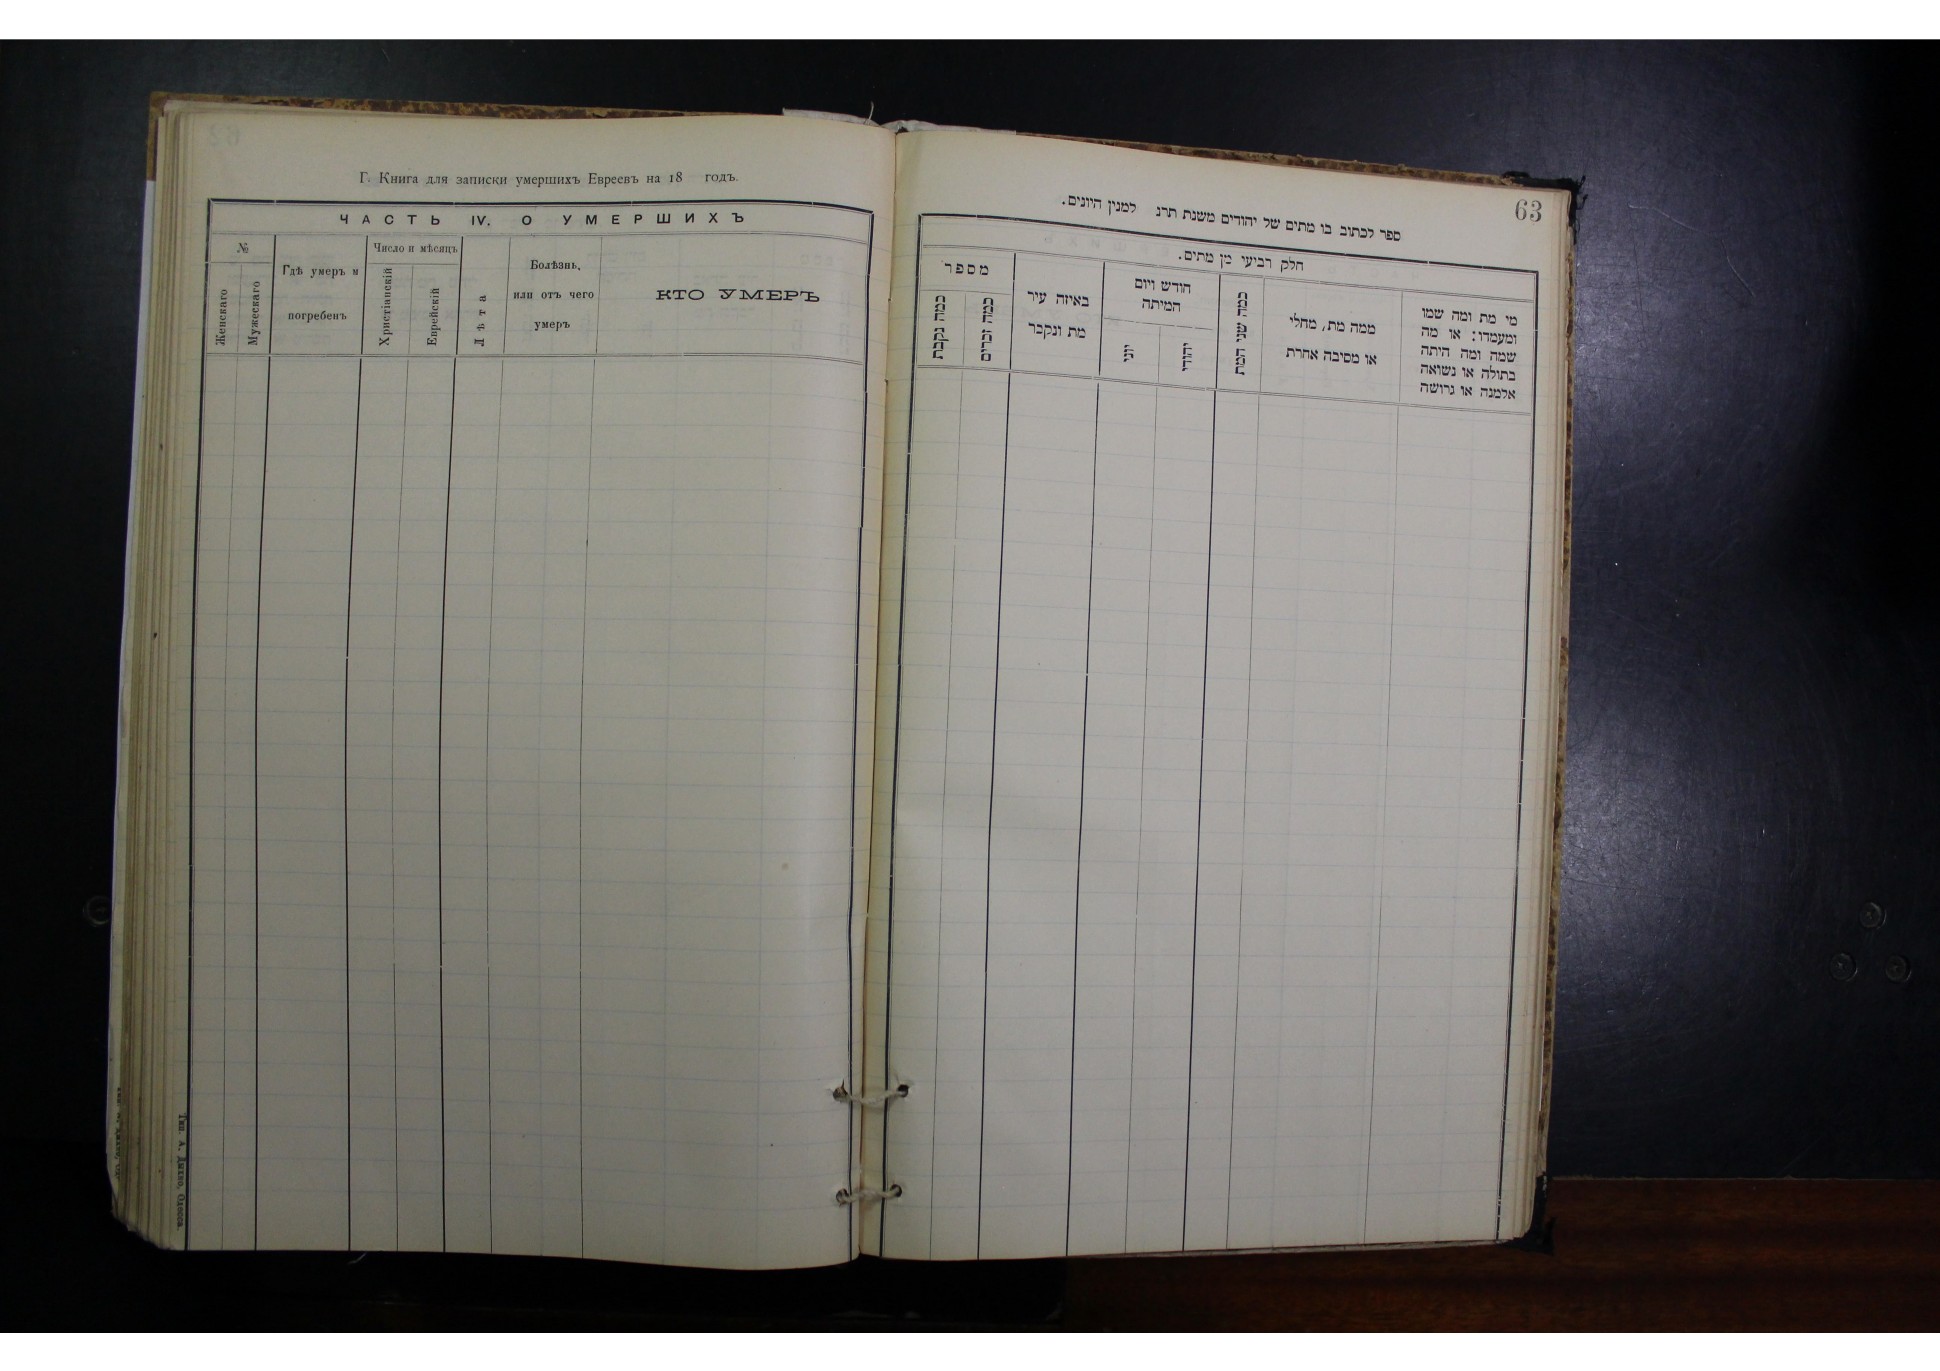 Г. Книга для записки умершихъ Евреевъ на 18 годъ.
ЧАСТЬ IV. О УМЕРШИХЪ
№
Женскаго
Мужескаго
Гдѣ умеръ и
погребенъ
Число и мѣсяцъ
Христіанскій
Еврейскій
Лѣта
Болѣзнь,
или отъ чего
умеръ
КТО УМЕРЪ
Тип. А. Дыхно, Одесса.
63
ספר לכתוב בו מתים של יהודים משנת תרנ למנין היונים.
חלק רביעי מן מתים.
מספר
כמה נקבת
כמה זכרים
באיזה עיר
מת ונקבר
חודש ויום
המיתה
יוני
יהודי
כמה שני המת
ממה מת, מחלי
או מסיבה אחרת
מי מת ומה שמו
ומעמדו: או מה
שמה ומה היתה
בתולה או נשואה
אלמנה או גרושה